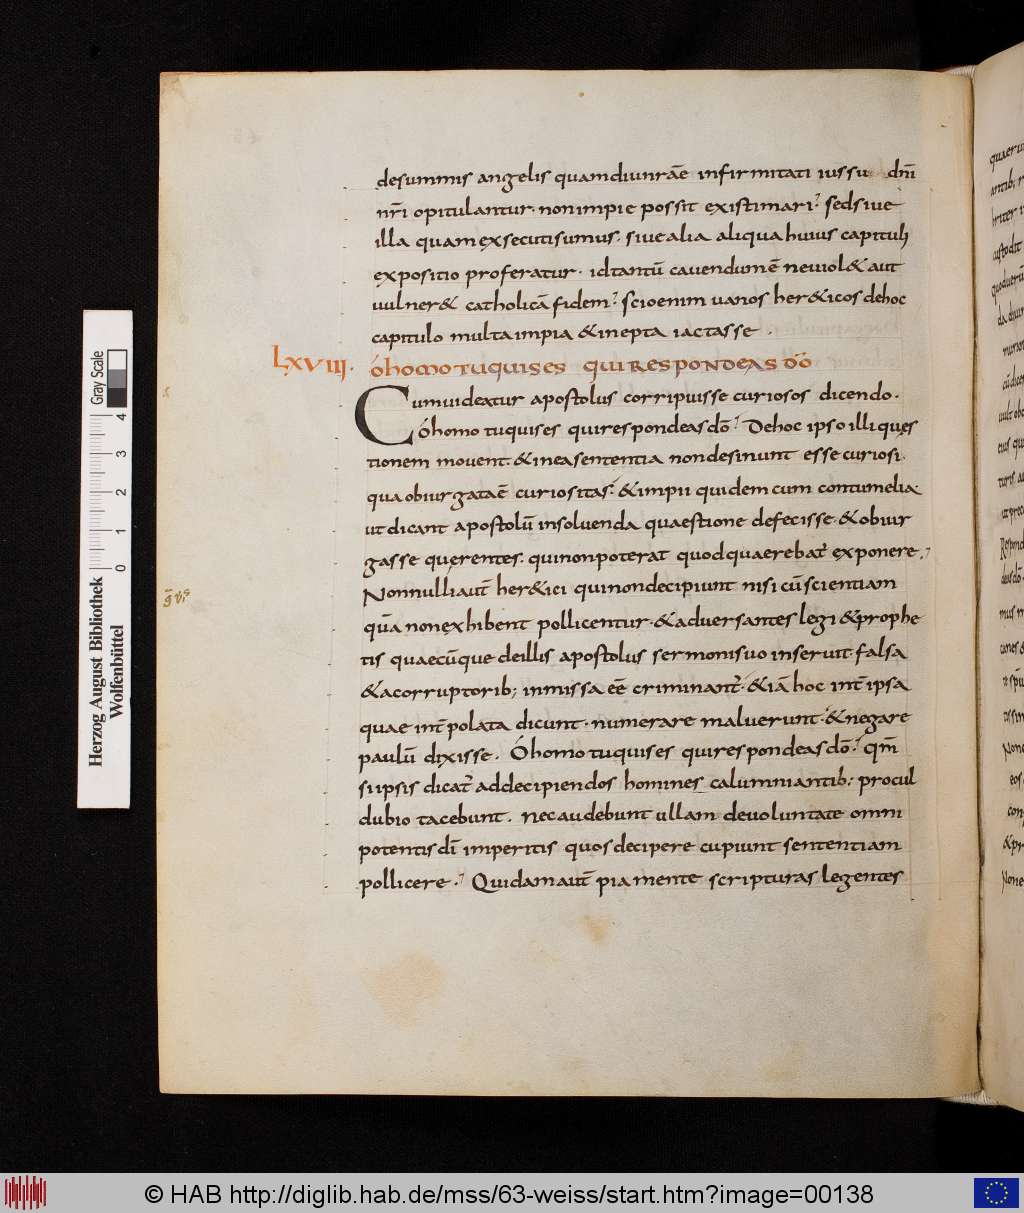 desummis angelis quamdiunrāe infirmitati iussu dn̄i
nr̄i opitulantur. nonimpie possit existimari? sedsiue
illa quamexsecutisumus. siuealia aliqua huius capituli
expositio proferatur. idtantū cauendumē neuiol& aut
uulner& catholicā fidem? scioenim uanos her&icos dehoc
capitulo multaimpia &inepta iactasse.
LXVIII. óhomotuquises quirespondeas dō
Cumuideatur apostolus corripuisse curiosos dicendo.
óhomo tuquises quirespondeasdō? Dehoc ipso illi quęs
tionem mouent. &ineasententia nondesinunt esse curiosi.
qua obiurgataē curiositas. &impii quidem cum contumelia.
ut dicant apostolū insoluenda quaestione defecisse. &obiur
gasse quęrentes. quinonpoterat quodquaerebat̄ exponere.
Nonnulliaut̄ her&ici quinondecipiunt nisi cūscientiam
quā nonexhibent pollicentur. &aduersantes legi &prophe
tis quaecūque deillis apostolus sermonisuo inseruit. falsa
&acorruptorib; inmissa eē criminant̄. &iā hoc int̄ ipsa
quae int̄polata dicunt. numerare maluerunt. &negare
paulū dixisse. Óhomo tuquises quirespondeasdō? qm̄
siipsis dicat̄ addecipiendos homines calumniantib; procul
dubio tacebunt. necaudebunt ullam deuoluntate omni
potentis dī imperitis quosdecipere cupiunt sententiam
pollicere. Quidamaut̄ piamente scripturas legentes
Herzog August Bibliothek
Wolfenbüttel
Gray Scale
0 1 2 3 4
© HAB http://diglib.hab.de/mss/63-weiss/start.htm?image=00138